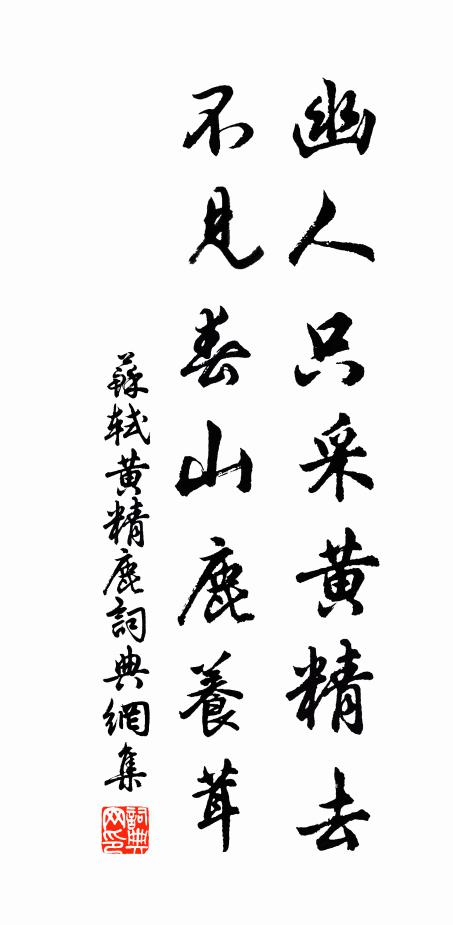 幽人只采黄精去
不見春山鹿養茸
蘇軾黄精鹿詞典網集
詞典网印